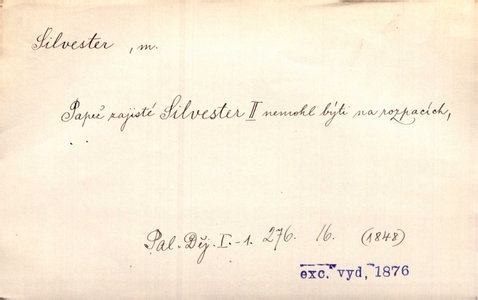 Silvester, m.
Papež zajisté Silvester II nemohl býti na rozpacích,
..
Pal. Děj. I.-1. 276. 16. (1848)
exc. vyd, 1876